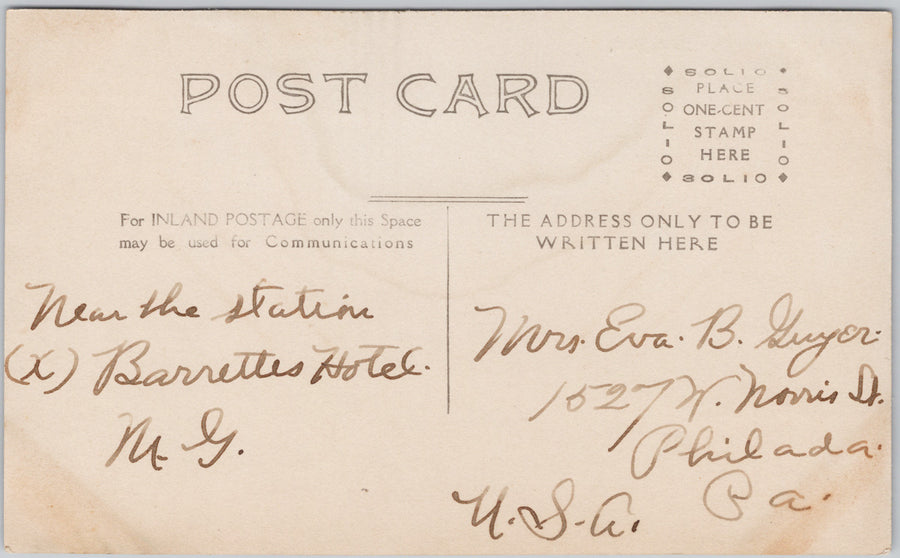 POST CARD
SOLIO
SOLIO
PLACE
ONE-CENT
STAMP
HERE
SOLIO
SOLIO
For INLAND POSTAGE only this Space
may be used for Communications
THE ADDRESS ONLY TO BE
WRITTEN HERE
Near the station
(X) Barrettes Hotel.
M G.
Mrs. Eva. B. Guyer.
1527 W. Norris St.
Philada.
Pa.
U.S.A.